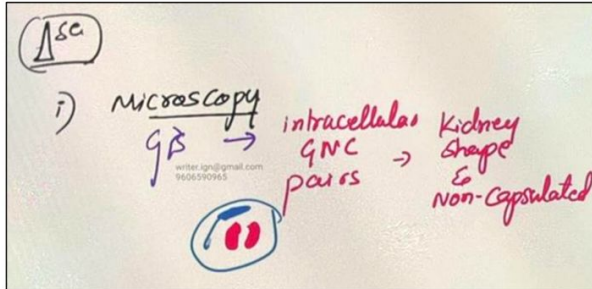 Δsa
i) Microscopy
gs → intracellular GNC pairs → Kidney shape & Non-Capsulated
writer.ign@gmail.com
9606590965